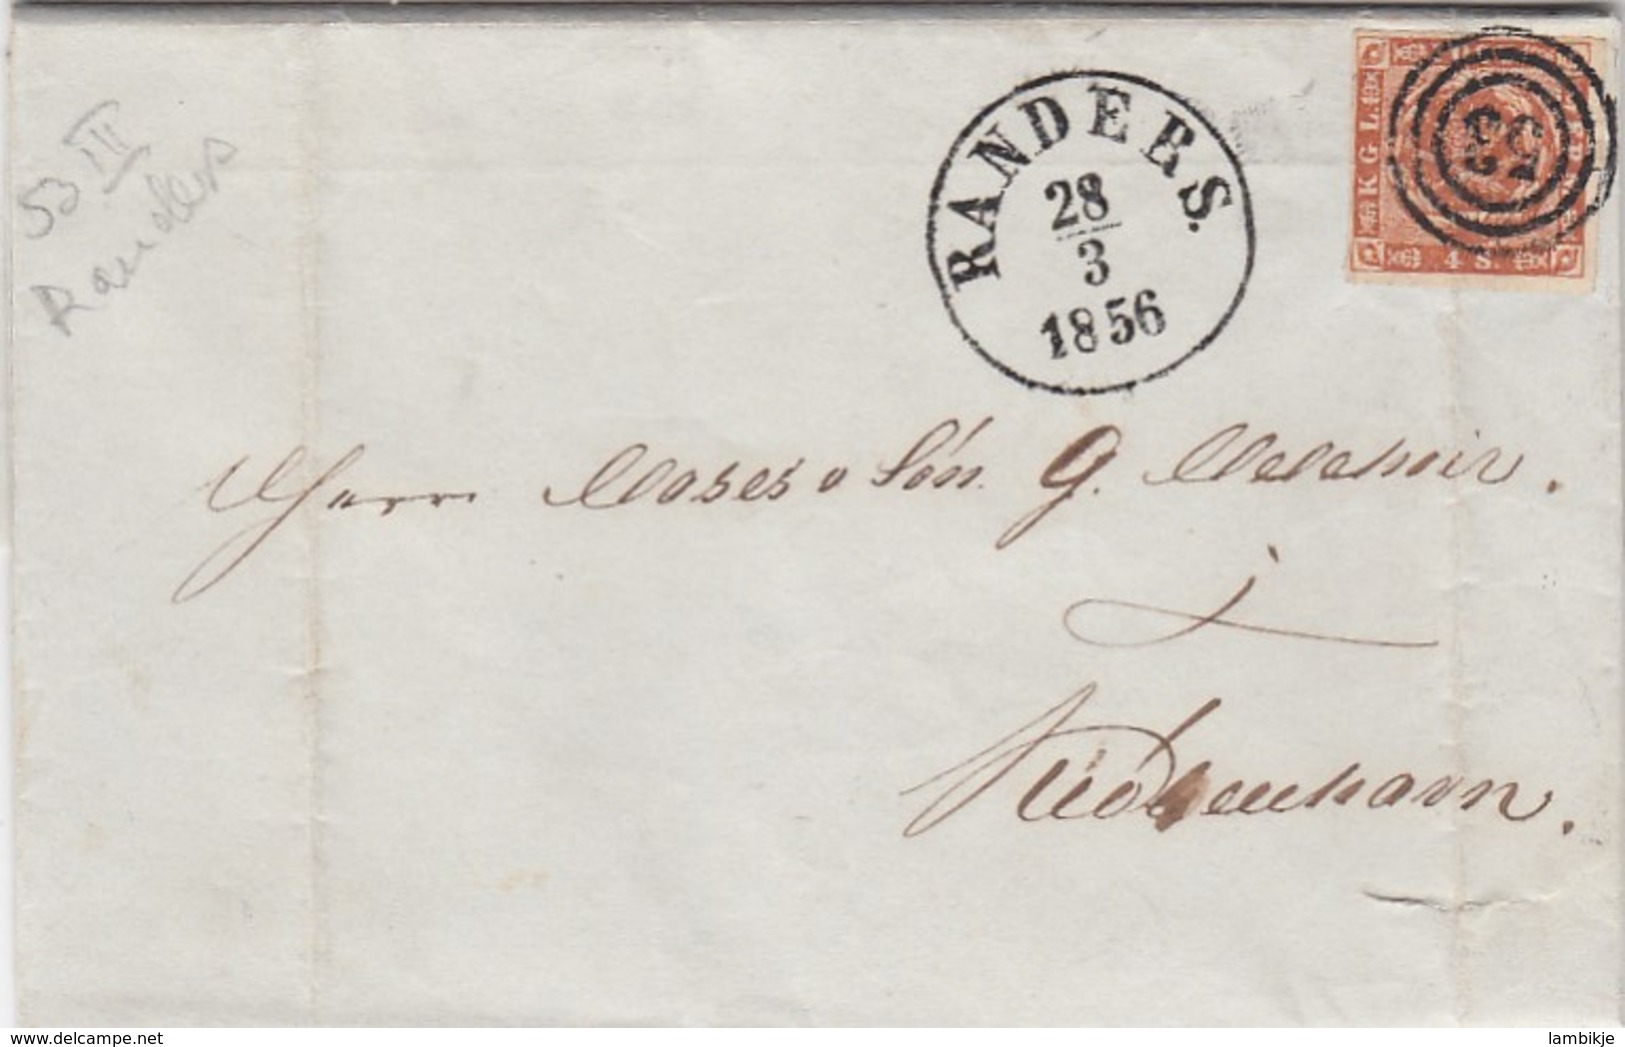 53 III
Randers
RANDERS.
28
3
1856
K G L
4 S.
53
Herrn Moses & Sön G. Melchior.
i
Kiöbenhavn.
www.delcampe.net
lambikje